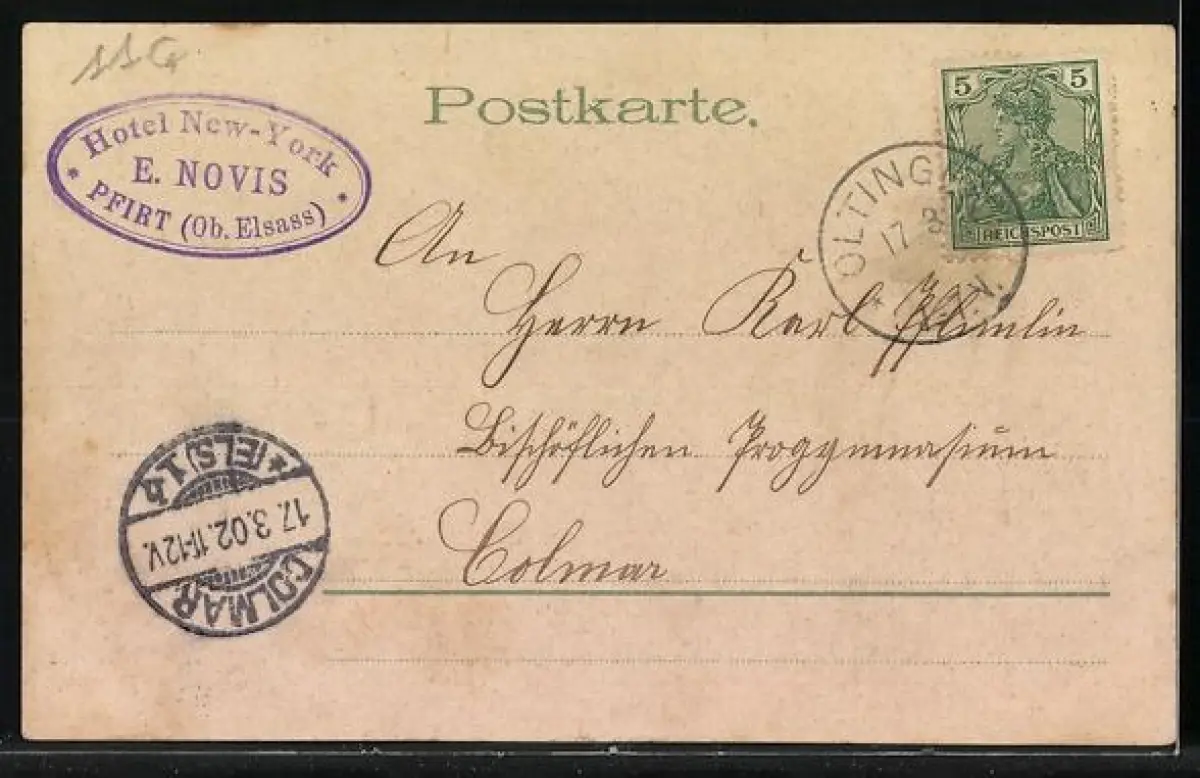 11G
Hotel New-York
E. NOVIS
* PFIRT (Ob. Elsass) *
Postkarte.
5 5
REICHSPOST
OLTING
17 3
V.
An
Herrn Karl Pflimlin
Bischöflichen Proggymnasium
Colmar
* (ELS) 1 h
17. 3. 02. 11-12V.
COLMAR